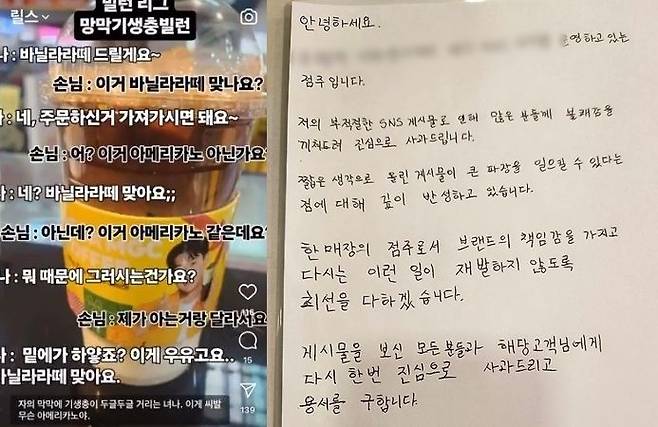 릴스
빌런 리그
망막기생충빌런
나 : 바닐라라떼 드릴게요~
손님 : 이거 바닐라라떼 맞나요?
나 : 네, 주문하신거 가져가시면 돼요~
손님 : 어? 이거 아메리카노 아닌가요?
나 : 네? 바닐라라떼 맞아요;;
손님 : 아닌데? 이거 아메리카노 같은데요?
나 : 뭐 때문에 그러시는건가요?
손님 : 제가 아는거랑 달라서요
나 : 밑에가 하얗죠? 이게 우유고요..
바닐라라떼 맞아요.
15
139
자의 망막에 기생충이 두글두글 거리는 녀나. 이게 씨발
무슨 아메리카노야.
안녕하세요.
영하고 있는
점주 입니다.
저의 부적절한 SNS 게시물로 인해 많은 분들께 불쾌감을
끼쳐드려 진심으로 사과드립니다.
짧은 생각으로 올린 게시물이 큰 파장을 일으킬 수 있다는
점에 대해 깊이 반성하고 있습니다.
한 매장의 점주로서 브랜드의 책임감을 가지고
다시는 이런 일이 재발하지 않도록
최선을 다하겠습니다.
게시물을 보신 모든분들과 해당고객님에게
다시 한번 진심으로 사과드리고
용서를 구합니다.